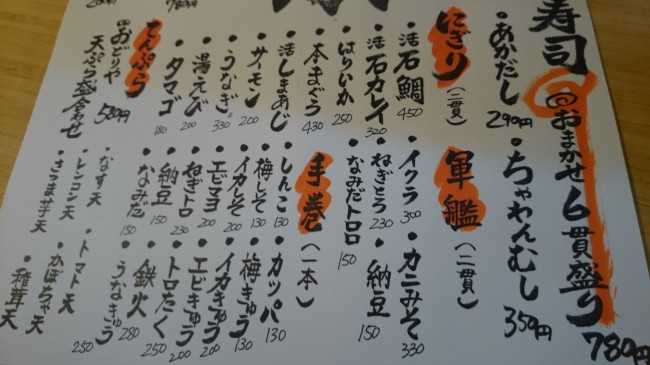 寿司
おまかせ6貫盛り 780円
・あかだし 290円
・ちゃわんむし 350円
にぎり(二貫)
・活石鯛 450
・活石カレイ 320
・はりいか 250
・本まぐろ 430
・活しまあじ
・サーモン 200
・うなぎ 330
・湯えび 200
・タマゴ 180
軍艦(二貫)
・イクラ 300
・カニみそ 330
・ねぎとろ 230
・納豆 150
・なみだトロロ 150
手巻(一本)
・しんこ 130
・カッパ 130
・梅しそ 130
・梅きゅう 130
・イカしそ 200
・イカきゅう 200
・エビマヨ 200
・エビきゅう 200
・ねぎトロ 230
・トロたく 200
・納豆 150
・鉄火 250
・なみだ 150
・うなきゅう 280
てんぷら
おどりや
天ぷら盛合わせ 580円
・なす天
・トマト天 250
・レンコン天
・かぼちゃ天
・さつま芋天
・椎茸天
780円